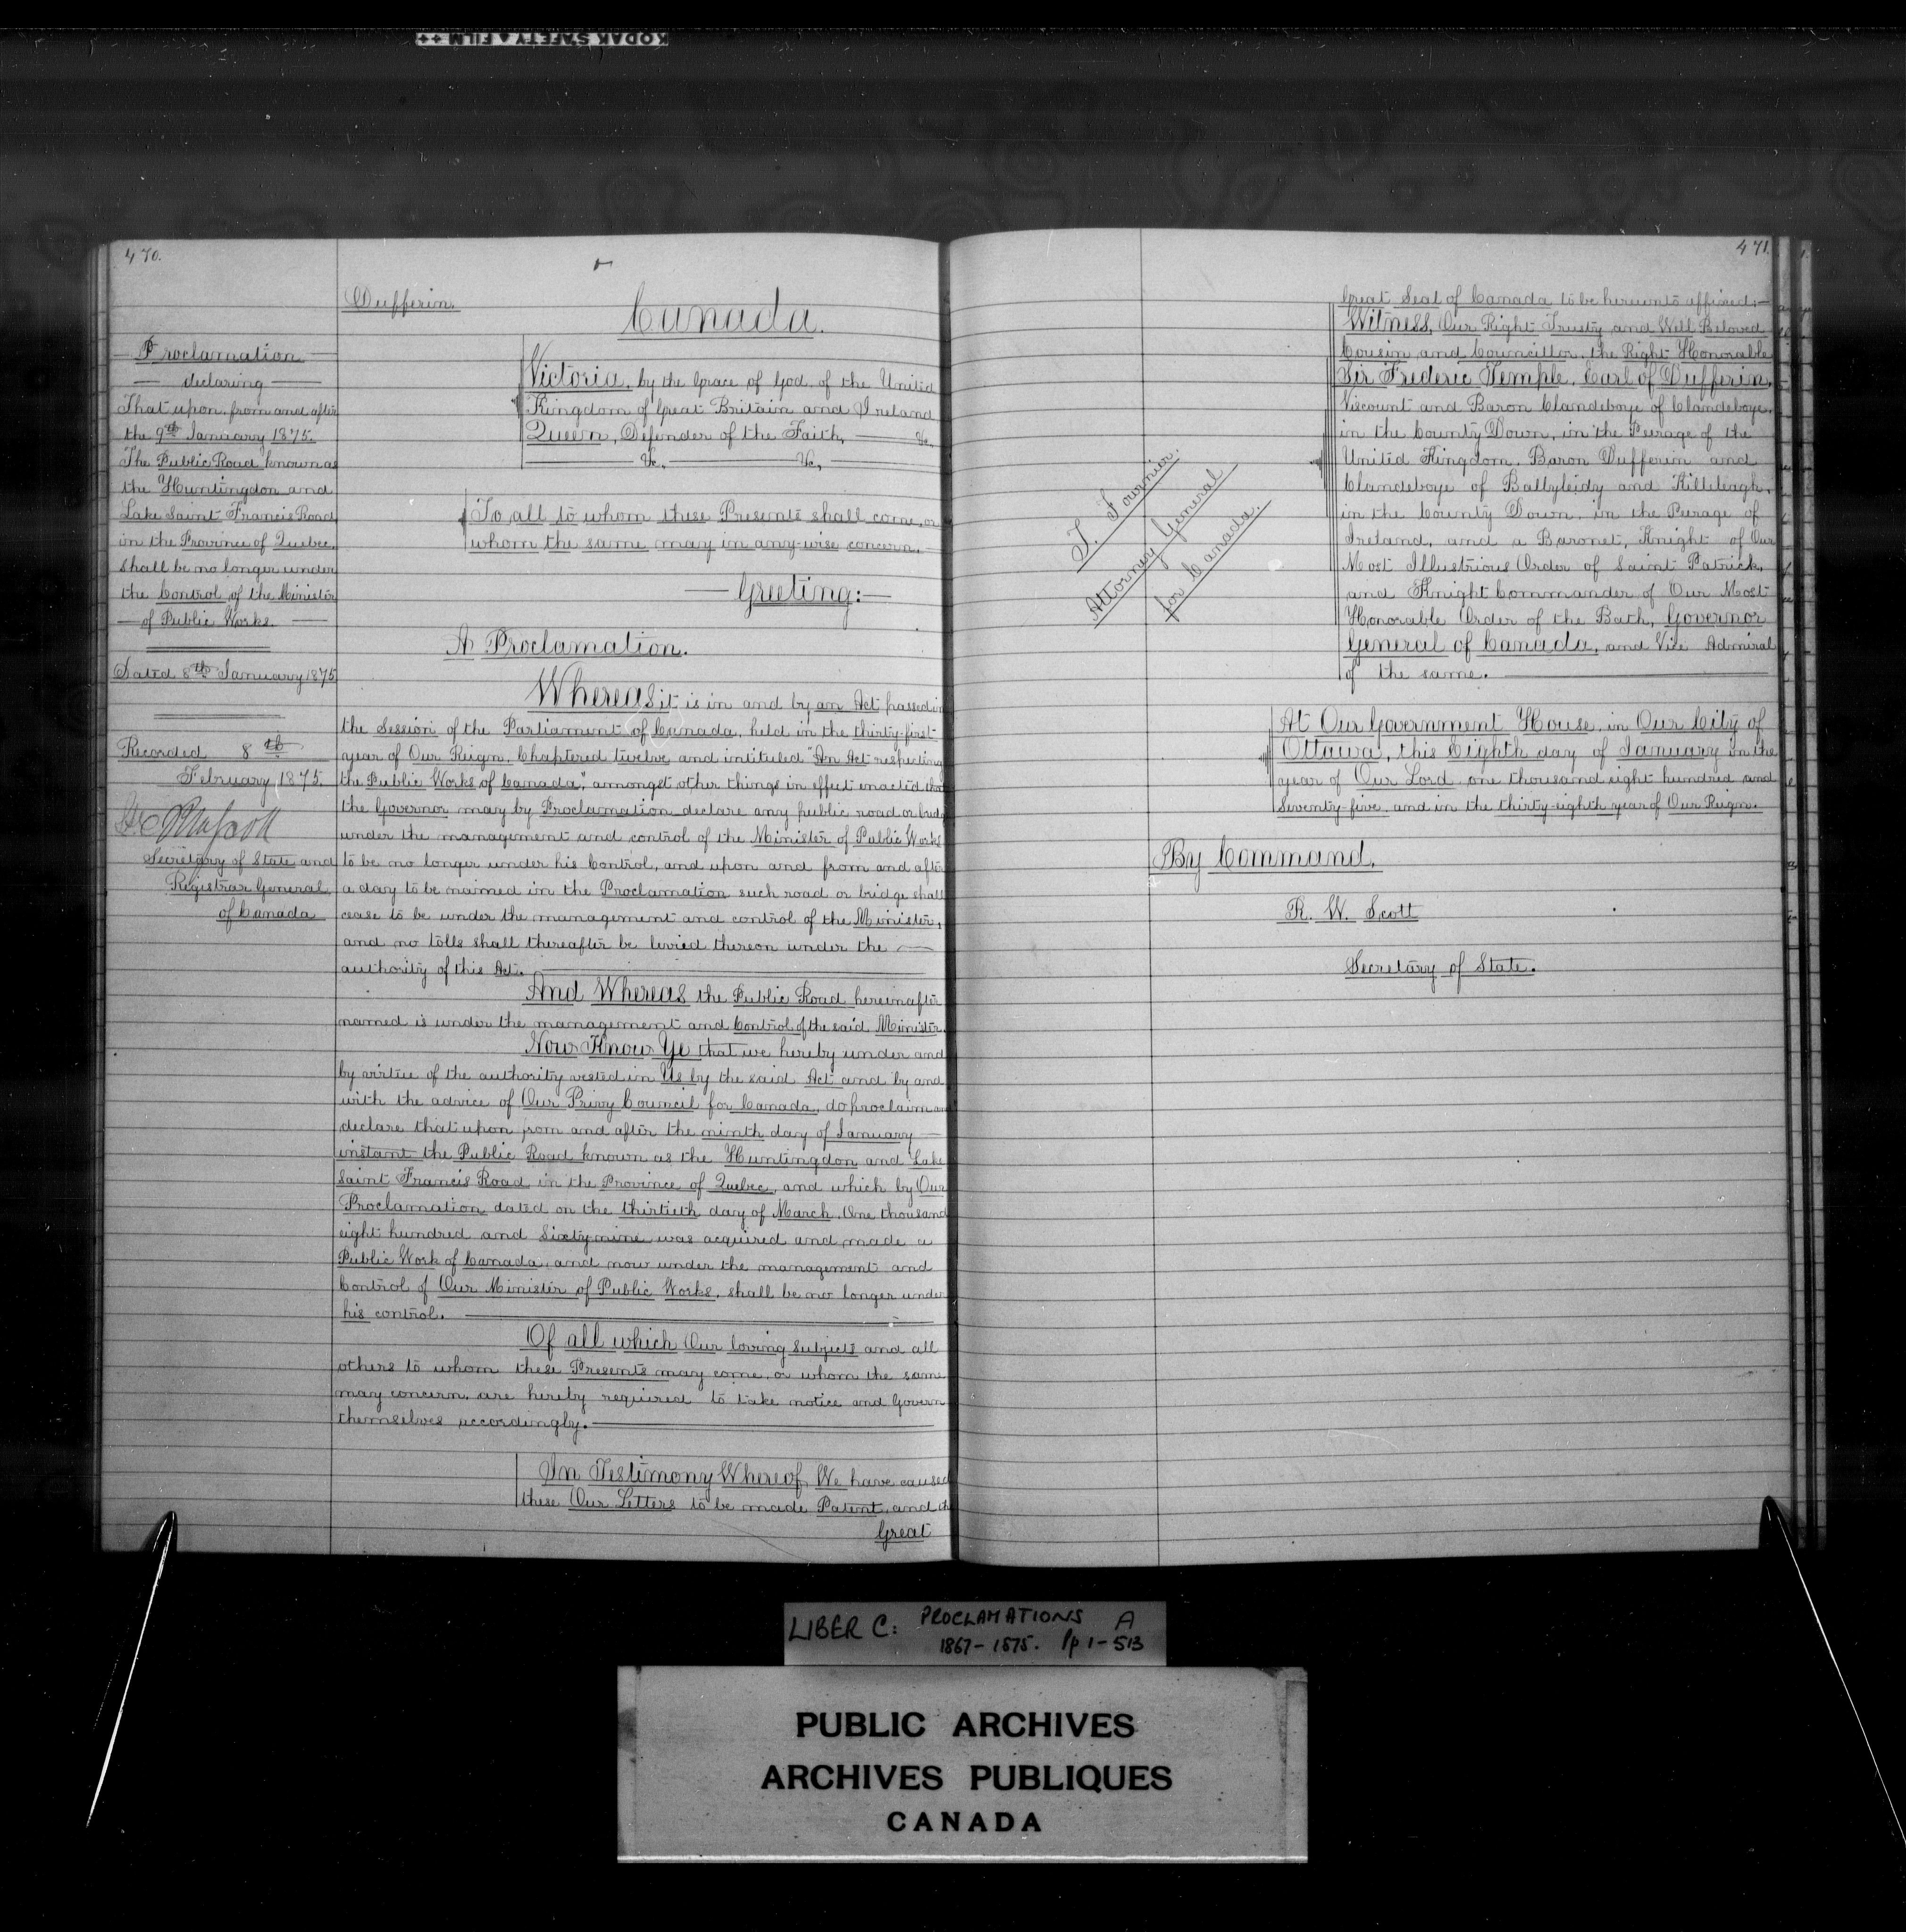 KODAK SAFETY FILM
470.
Dufferin.
Canada.
Proclamation
declaring
That upon, from and after
the 9th January 1875.
The Public Road known as
the Huntingdon and
Lake Saint Francis Road
in the Province of Quebec,
shall be no longer under
the Control of the Minister
of Public Works.
Dated 8th January 1875
Recorded 8th
February 1875.
Secretary of State and
Registrar General
of Canada
Victoria, by the Grace of God, of the United
Kingdom of Great Britain and Ireland
Queen, Defender of the Faith, &c.
&c., &c.,
To all to whom these Presents shall come, or
whom the same may in any-wise concern.
Greeting:
A Proclamation.
Whereas it is in and by an Act passed in
the Session of the Parliament of Canada, held in the thirty-first
year of Our Reign, Chaptered twelve and intituled "An Act respecting
the Public Works of Canada," amongst other things in effect enacted that
the Governor may by Proclamation declare any public road or bridge
under the management and control of the Minister of Public Works
to be no longer under his Control, and upon and from and after
a day to be named in the Proclamation such road or bridge shall
cease to be under the management and control of the Minister,
and no tolls shall thereafter be levied thereon under the
authority of this Act.
And Whereas the Public Road hereinafter
named is under the management and Control of the said Minister.
Now Know Ye that we hereby under and
by virtue of the authority vested in Us by the said Act and by and
with the advice of Our Privy Council for Canada, do proclaim and
declare that upon from and after the ninth day of January
instant the Public Road known as the Huntingdon and Lake
Saint Francis Road in the Province of Quebec, and which by Our
Proclamation dated on the thirtieth day of March, One thousand
eight hundred and Sixty nine was acquired and made a
Public Work of Canada, and now under the management and
Control of Our Minister of Public Works, shall be no longer under
his control.
Of all which Our loving Subjects and all
others to whom these Presents may come, or whom the same
may concern, are hereby required to take notice and Govern
themselves accordingly.
In Testimony Whereof, We have caused
these Our Letters to be made Patent, and the
Great
471.
Great Seal of Canada to be hereunto affixed:—
Witness, Our Right Trusty and Well Beloved
Cousin and Councillor, the Right Honorable
Sir Frederic Temple, Earl of Dufferin,
Viscount and Baron Clandeboye of Clandeboye,
in the County Down, in the Peerage of the
United Kingdom, Baron Dufferin and
Clandeboye of Ballyleidy and Killeleagh,
in the County Down, in the Peerage of
Ireland, and a Baronet, Knight of Our
Most Illustrious Order of Saint Patrick,
and Knight Commander of Our Most
Honorable Order of the Bath, Governor
General of Canada, and Vice Admiral
of the same.
T. Fournier.
Attorney General
for Canada.
At Our Government House, in Our City of
Ottawa, this Eighth day of January in the
year of Our Lord one thousand eight hundred and
Seventy-five, and in the thirty-eighth year of Our Reign.
By Command,
R. W. Scott
Secretary of State.
LIBER C: PROCLAMATIONS A
1867-1875. Pp 1-513
PUBLIC ARCHIVES
ARCHIVES PUBLIQUES
CANADA